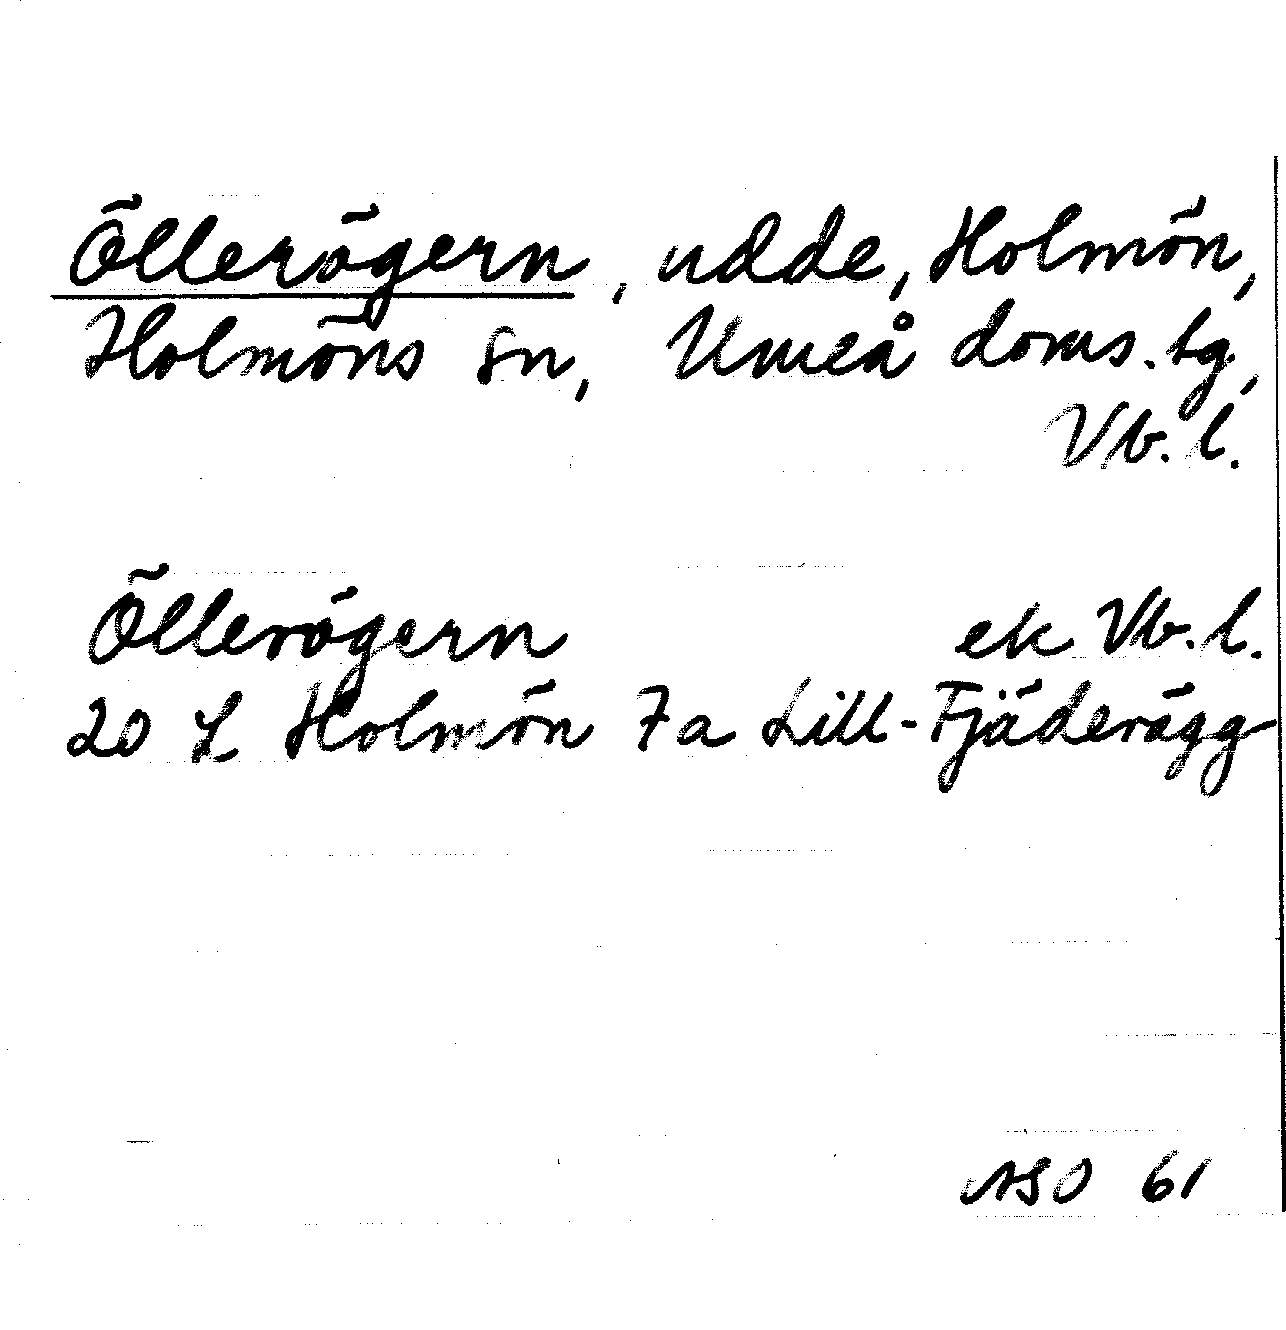 Öllerögern, udde, Holmön,
Holmöns sn, Umeå doms.sg,
Vb. l.
Öllerögern ek Vb. l.
20 L Holmön 7a Lill-Fjäderägg
ASO 61